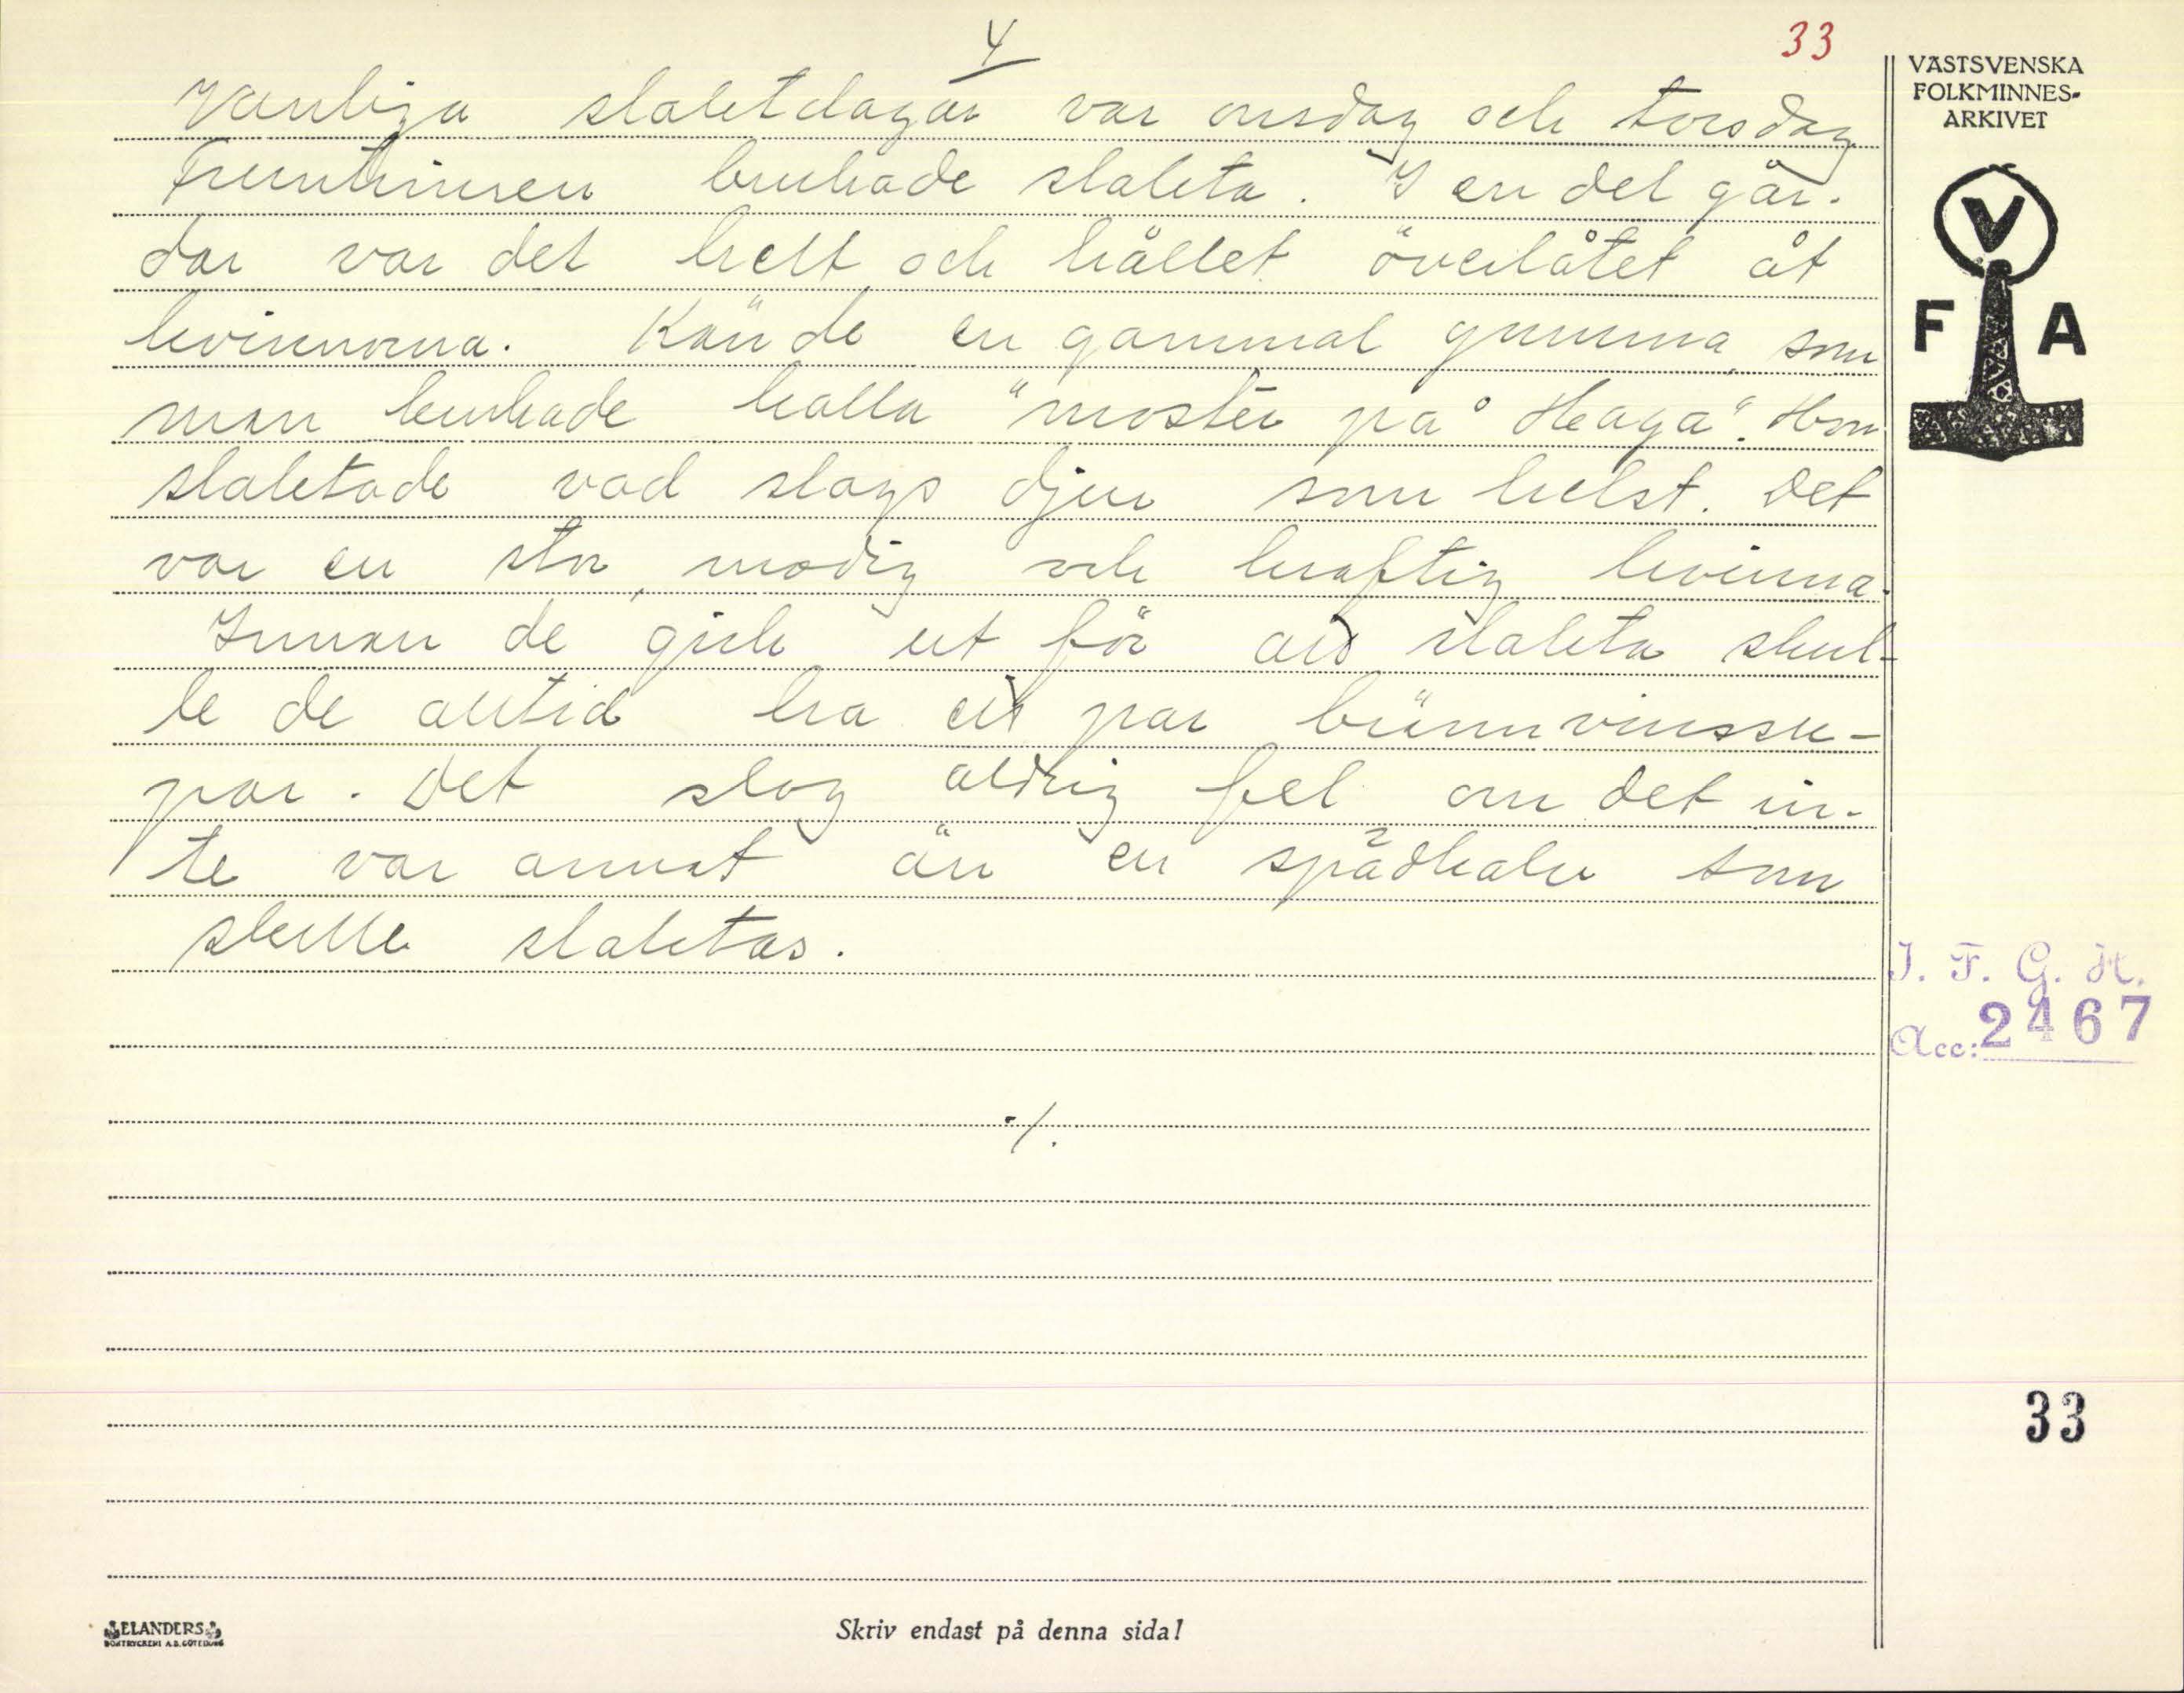 4
33
Vanliga slaktdagar var onsdag och torsdag
Fruntimren brukade slakta. I en del går-
dar var det helt och hållet överlåtet åt
kvinnorna. Kände en gammal gumma som
man brukade kalla "moster på Haga". Hon
slaktade vad slags djur som helst. Det
var en stor, modig och kraftig kvinna.
Innan de gick ut för att slakta skul-
le de alltid ha ett par brännvinssu-
par. Det slog aldrig fel om det in-
te var annat än en spädkalv som
skulle slaktas.
./.
VÄSTSVENSKA
FOLKMINNES-
ARKIVET
V
F A
I. F. G. H.
Acc: 2467
33
ELANDERS
BOKTRYCKERI A.B. GÖTEBORG
Skriv endast på denna sida!